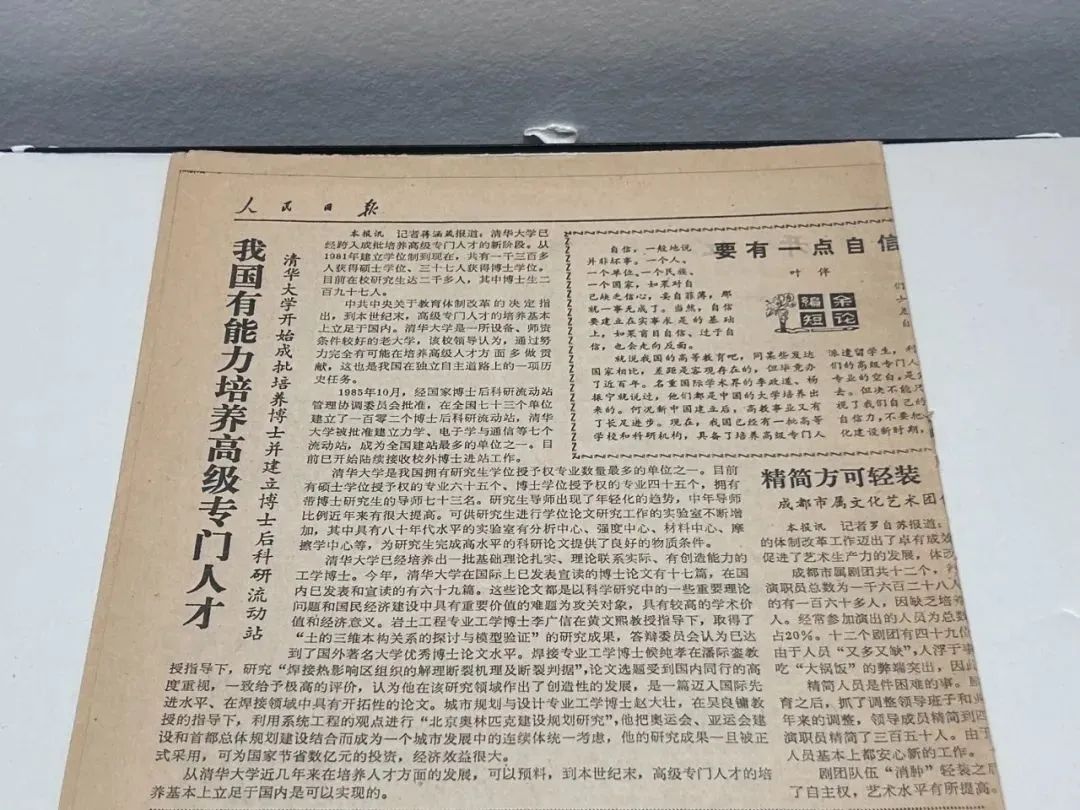 人民日报
我国有能力培养高级专门人才
清华大学开始成批培养博士并建立博士后科研流动站
本报讯 记者蒋涵箴报道：清华大学已
经跨入成批培养高级专门人才的新阶段。从
1981年建立学位制到现在，共有一千三百多
人获得硕士学位、三十七人获得博士学位。
目前在校研究生达二千多人，其中博士生二
百九十七人。
中共中央关于教育体制改革的决定指
出，到本世纪末，高级专门人才的培养基本
上立足于国内。清华大学是一所设备、师资
条件较好的老大学，该校领导认为，通过努
力完全有可能在培养高级人才方面多做贡
献，这也是我国在独立自主道路上的一项历
史任务。
1985年10月，经国家博士后科研流动站
管理协调委员会批准，在全国七十三个单位
建立了一百零二个博士后科研流动站，清华
大学被批准建立力学、电子学与通信等七个
流动站，成为全国建站最多的单位之一。目
前已开始陆续接收校外博士进站工作。
清华大学是我国拥有研究生学位授予权专业数量最多的单位之一。目前
有硕士学位授予权的专业六十五个、博士学位授予权的专业四十五个，拥有
带博士研究生的导师七十三名。研究生导师出现了年轻化的趋势，中年导师
比例近年来有很大提高。可供研究生进行学位论文研究工作的实验室不断增
加，其中具有八十年代水平的实验室有分析中心、强度中心、材料中心、摩
擦学中心等，为研究生完成高水平的科研论文提供了良好的物质条件。
清华大学已经培养出一批基础理论扎实、理论联系实际、有创造能力的
工学博士。今年，清华大学在国际上已发表宣读的博士论文有十七篇，在国
内已发表和宣读的有六十九篇。这些论文都是以科学研究中的一些重要理论
问题和国民经济建设中具有重要价值的难题为攻关对象，具有较高的学术价
值和经济意义。岩土工程专业工学博士李广信在黄文熙教授指导下，取得了
“土的三维本构关系的探讨与模型验证”的研究成果，答辩委员会认为已达
到了国外著名大学优秀博士论文水平。焊接专业工学博士侯纯孝在潘际銮教
授指导下，研究“焊接热影响区组织的解理断裂机理及断裂判据”，论文选题受到国内同行的高
度重视，一致给予极高的评价，认为他在该研究领域作出了创造性的发展，是一篇迈入国际先
进水平、在焊接领域中具有开拓性的论文。城市规划与设计专业工学博士赵大壮，在吴良镛教
授的指导下，利用系统工程的观点进行“北京奥林匹克建设规划研究”，他把奥运会、亚运会建
设和首都总体规划建设结合而成为一个城市发展中的连续体统一考虑，他的研究成果一旦被正
式采用，可为国家节省数亿元的投资，经济效益很大。
从清华大学近几年来在培养人才方面的发展，可以预料，到本世纪末，高级专门人才的培
养基本上立足于国内是可以实现的。
要有一点自信
叶伴
编余短论
自信，一般地说
并非坏事。一个人、
一个单位、一个民族、
一个国家，如果对自
己缺乏信心，妄自菲薄，那
就一事无成了。当然，自信
要建立在实事求是的基础
上，如果盲目自信、过于自
信，也会走向反面。
就说我国的高等教育吧，同某些发达
国家相比，差距是客观存在的，但毕竟办
了近百年。名重国际学术界的李政道、杨
振宁就说过，他们都是中国的大学培养出
来的。何况新中国建立后，高教事业又有
了长足进步。现在，我国已经有一批高等
学校和科研机构，具备了培养高级专门人
们
自
派遣留学生，利
们的高级专门人
专业的空白，是
去。但决不能只
视了我们自己的
自信力，不要把
化建设新时期，
精简方可轻装
成都市属文化艺术团
本报讯 记者罗自苏报道：
的体制改革工作迈出了卓有成效
促进了艺术生产力的发展，体改
成都市属剧团共十二个，
演职员总数为一千六百二十八人
的有一百六十多人，因缺乏培养
人。经常参加演出的人员为总数
占20%。十二个剧团有四十九位
由于人员“又多又缺”，人浮于事
吃“大锅饭”的弊端突出，因此
精简人员是件困难的事。
育之后，抓了调整领导班子和
年来的调整，领导成员精简到四
演职员精简了三百五十人。由于
人员基本上都安心新的工作。
剧团队伍“消肿”轻装之后
了自主权，艺术水平有所提高。